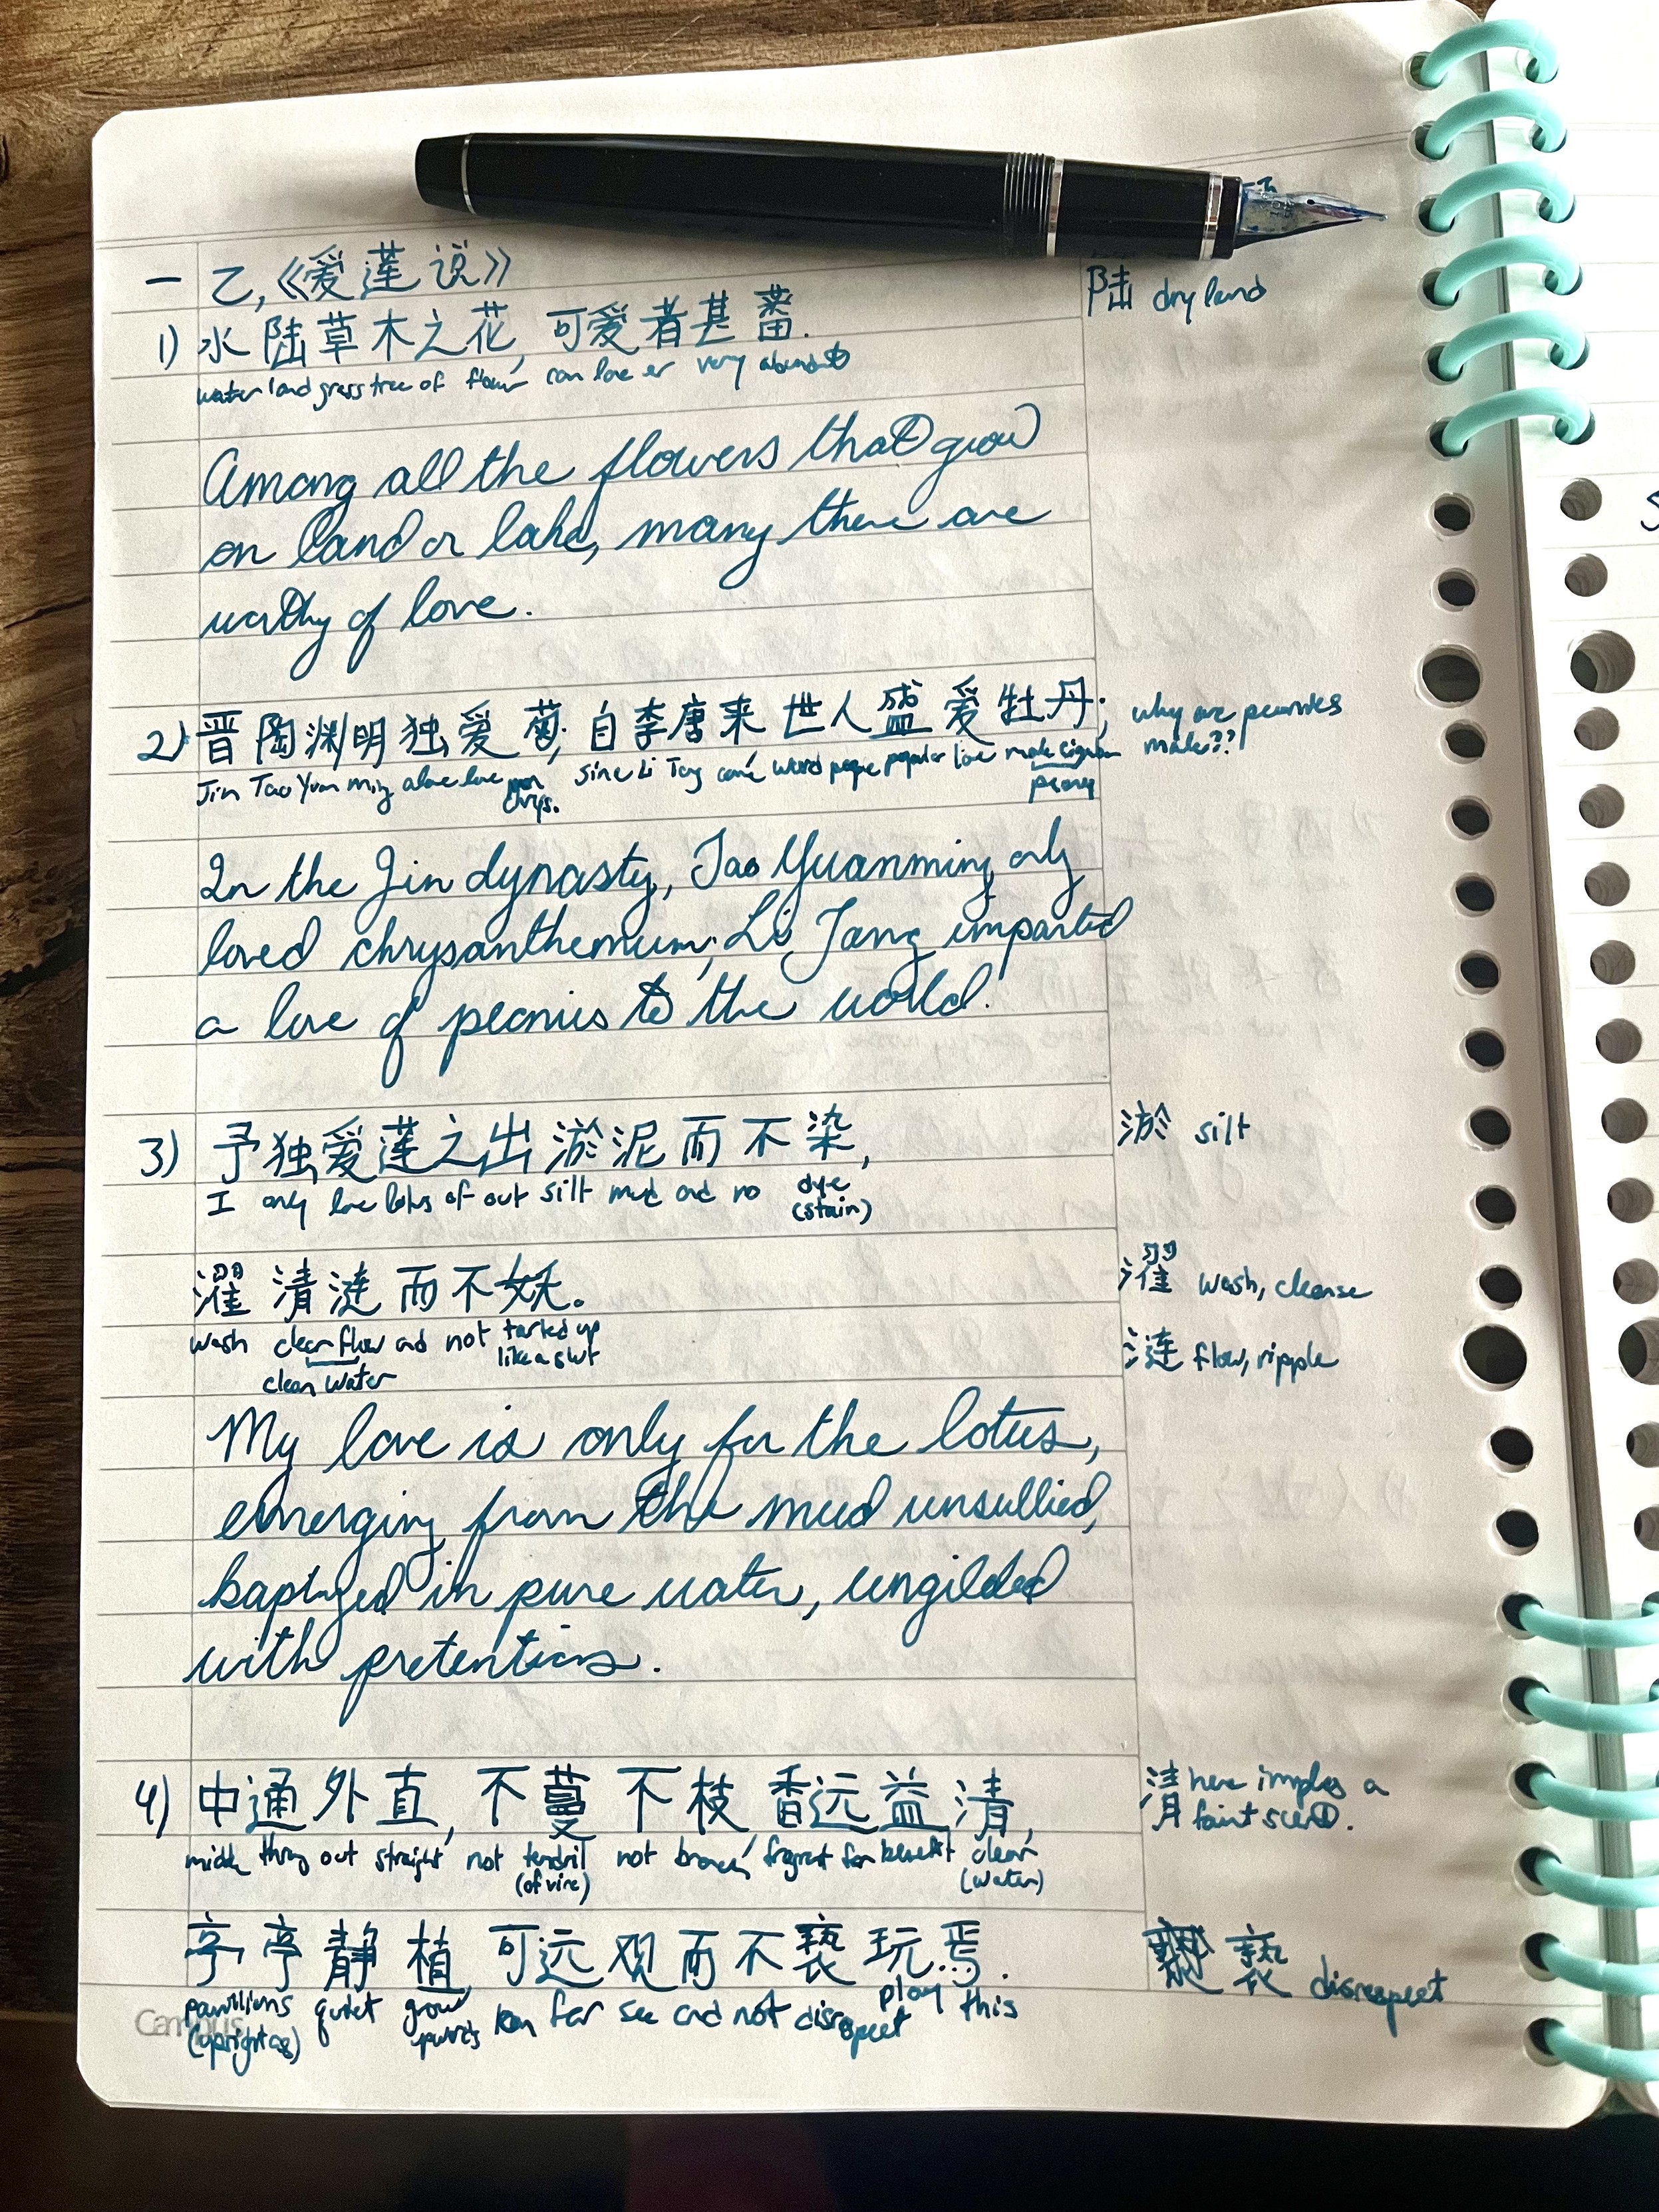 一乙,《爱莲说》
1) 水陆草木之花, 可爱者甚蕃.
陆 dry land
water land grass tree of flower can love er very abundant
Among all the flowers that grow
on land or lake, many there are
worthy of love.
2) 晋陶渊明独爱菊; 自李唐来世人盛爱牡丹;
why are peonies
male??
Jin Tao Yuan Ming alone love chrys. Since Li Tang came world people popular love male
peony
In the Jin dynasty, Tao Yuanming only
loved chrysanthemum; Li Tang imparted
a love of peonies to the world.
3) 予独爱莲之出淤泥而不染,
淤 silt
I only love lotus of out silt mud and no dye
(stain)
濯清涟而不妖。
濯 wash, cleanse
wash clean flow and not tarted up
like a slut
clean water
涟 flow, ripple
My love is only for the lotus,
emerging from the mud unsullied,
baptized in pure water, ungilded
with pretentions.
4) 中通外直, 不蔓不枝, 香远益清,
清 here implies a
faint scent.
middle thru out straight, not tendril not branch, fragrant far benefit clear
(of vine) (water)
亭亭静植, 可远观而不亵玩焉.
亵 disrespect
pavillions quiet grow can far see and not disrespect play this
(upright as)
Campus